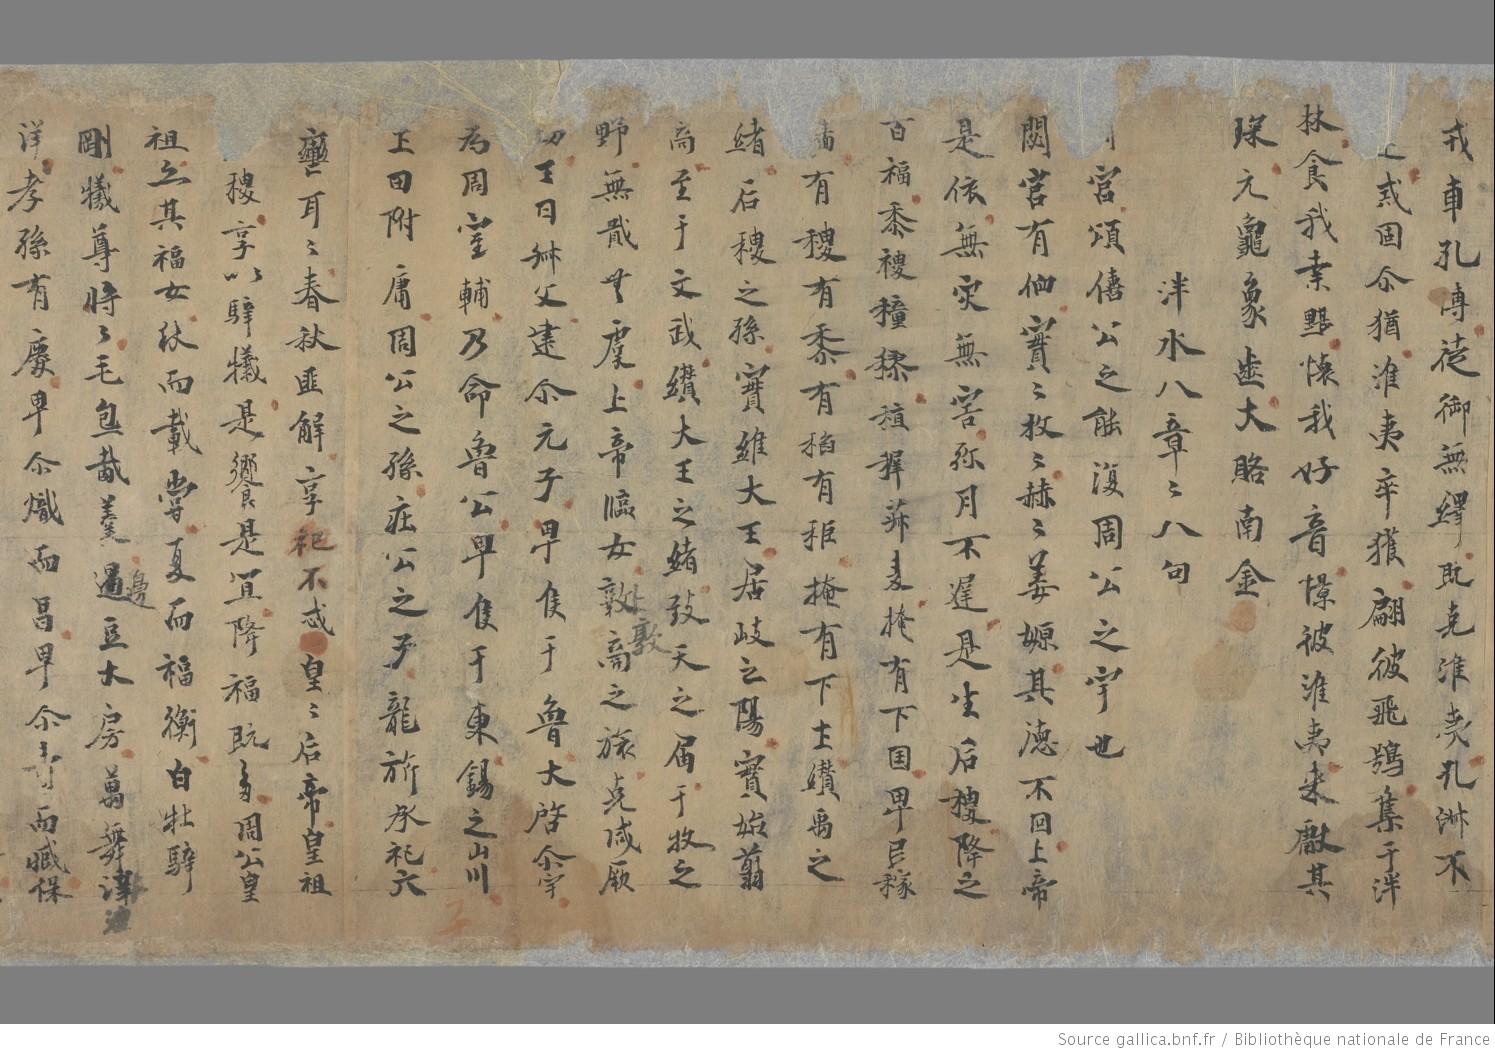 戎車孔博徒御無繹旣克淮夷孔淑不
式固尒猶淮夷卒獲翩彼飛鴞集于泮
林食我桒黮懷我好音憬彼淮夷来獻其
琛元龜象齒大賂南金
泮水八章〻八句
宮頌僖公之能復周公之宇也
閟宮有侐實〻枚〻赫〻姜嫄其德不回上帝
是依無灾無害弥月不遲是生后稷降之
百福黍稷穜稑稙稺菽麦掩有下国畀民稼
穡有稷有黍有稻有秬掩有下土纘禹之
緒后稷之孫實維大王居岐之陽實始翦
商至于文武纘大王之緒致天之届于牧之
野無貮無虞上帝臨女敦商之旅克咸厥
功王曰叔父建尒元子卑侯于魯大啓尒宇
為周室輔乃命魯公卑侯于東錫之山川
土田附庸周公之孫莊公之子龍旂承祀六
轡耳〻春秋匪解享祀不忒皇〻后帝皇祖
稷享以騂犧是饗是宜降福旣多周公皇
祖亦其福女秋而載嘗夏而福衡白牡騂
剛犧尊將〻毛炰胾羹邊豆大房萬舞洋
洋孝孫有慶卑尒熾而昌卑尒壽而臧保
邊
敦
Source gallica.bnf.fr / Bibliothèque nationale de France